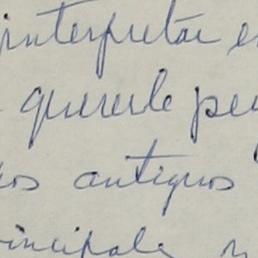 interpretar e
quererle pe
os antiguos
incipale